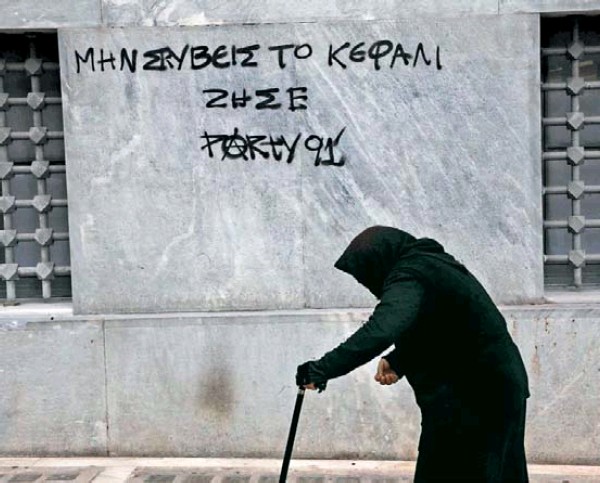 ΜΗΝ ΣΚΥΒΕΙΣ ΤΟ ΚΕΦΑΛΙ
ΖΗΣΕ
PARtY 91